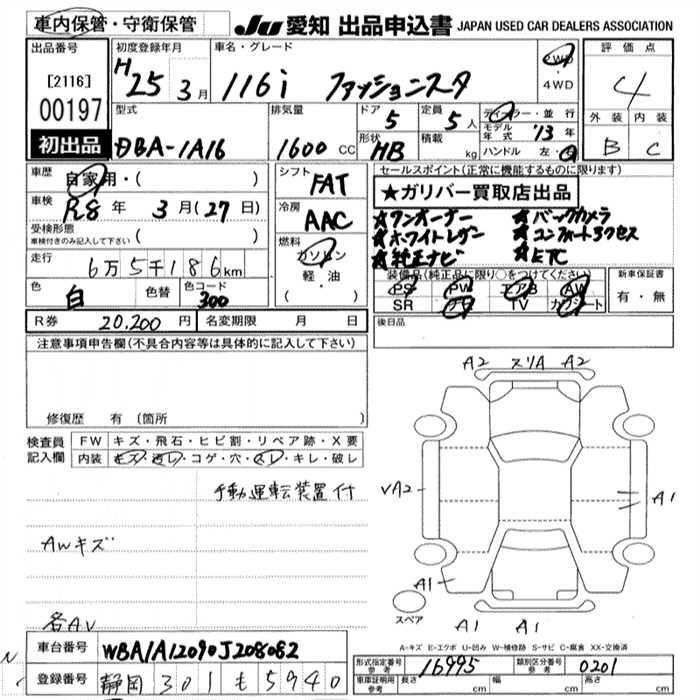 車内保管・守衛保管
JU 愛知 出品申込書 JAPAN USED CAR DEALERS ASSOCIATION
出品番号
[2116]
00197
初出品
初度登録年月
H25年3月
車名・グレード
116i ファッションスタ
2WD・4WD
評価点
4
外装 内装
B C
型式
DBA-1A16
排気量
1600 CC
ドア
5
形状
HB
定員
5人
積載
kg
ディーラー・並行
モデル年式 '13年
ハンドル 左・右
車歴
自家用・( )
車検
R8年3月(27日)
受検形態
車検付きのみ記入して下さい ( )
走行
6万5千186km
色
白
色替
色コード
300
シフト
FAT
冷房
AAC
燃料
ガソリン
軽・油
( )
セールスポイント(正常に機能するものに限ります)
★ガリバー買取店出品
★ワンオーナー ★バックカメラ
★ホワイトレザー ★コンフォートアクセス
★純正ナビ ★ETC
装備品(純正品に限り○をつけてください)
PS PW エアB AW
SR ナビ TV カワシート
新車保証書
有・無
R券 20,200円 名変期限 月 日
後日品
注意事項申告欄(不具合内容等は具体的に記入して下さい)
修復歴 有(箇所 )
検査員記入欄
FW キズ・飛石・ヒビ割・リペア跡・X要
内装 キズ・汚レ・コゲ・穴・スレ・キレ・破レ
手動運転装置付
AWキズ
各AV
A2 スリA A2
VA2
A1
A1
A1 A1
スペア
A-キズ E-エクボ U-凹み W-補修跡 S-サビ C-腐食 XX-交換済
車台番号 WBA1A12090J208082
登録番号 静岡 301 も 5940
形式指定番号 参考 16995
類別区分番号 参考 0201
車体証明用 参考 長さ cm 幅 cm 高さ cm